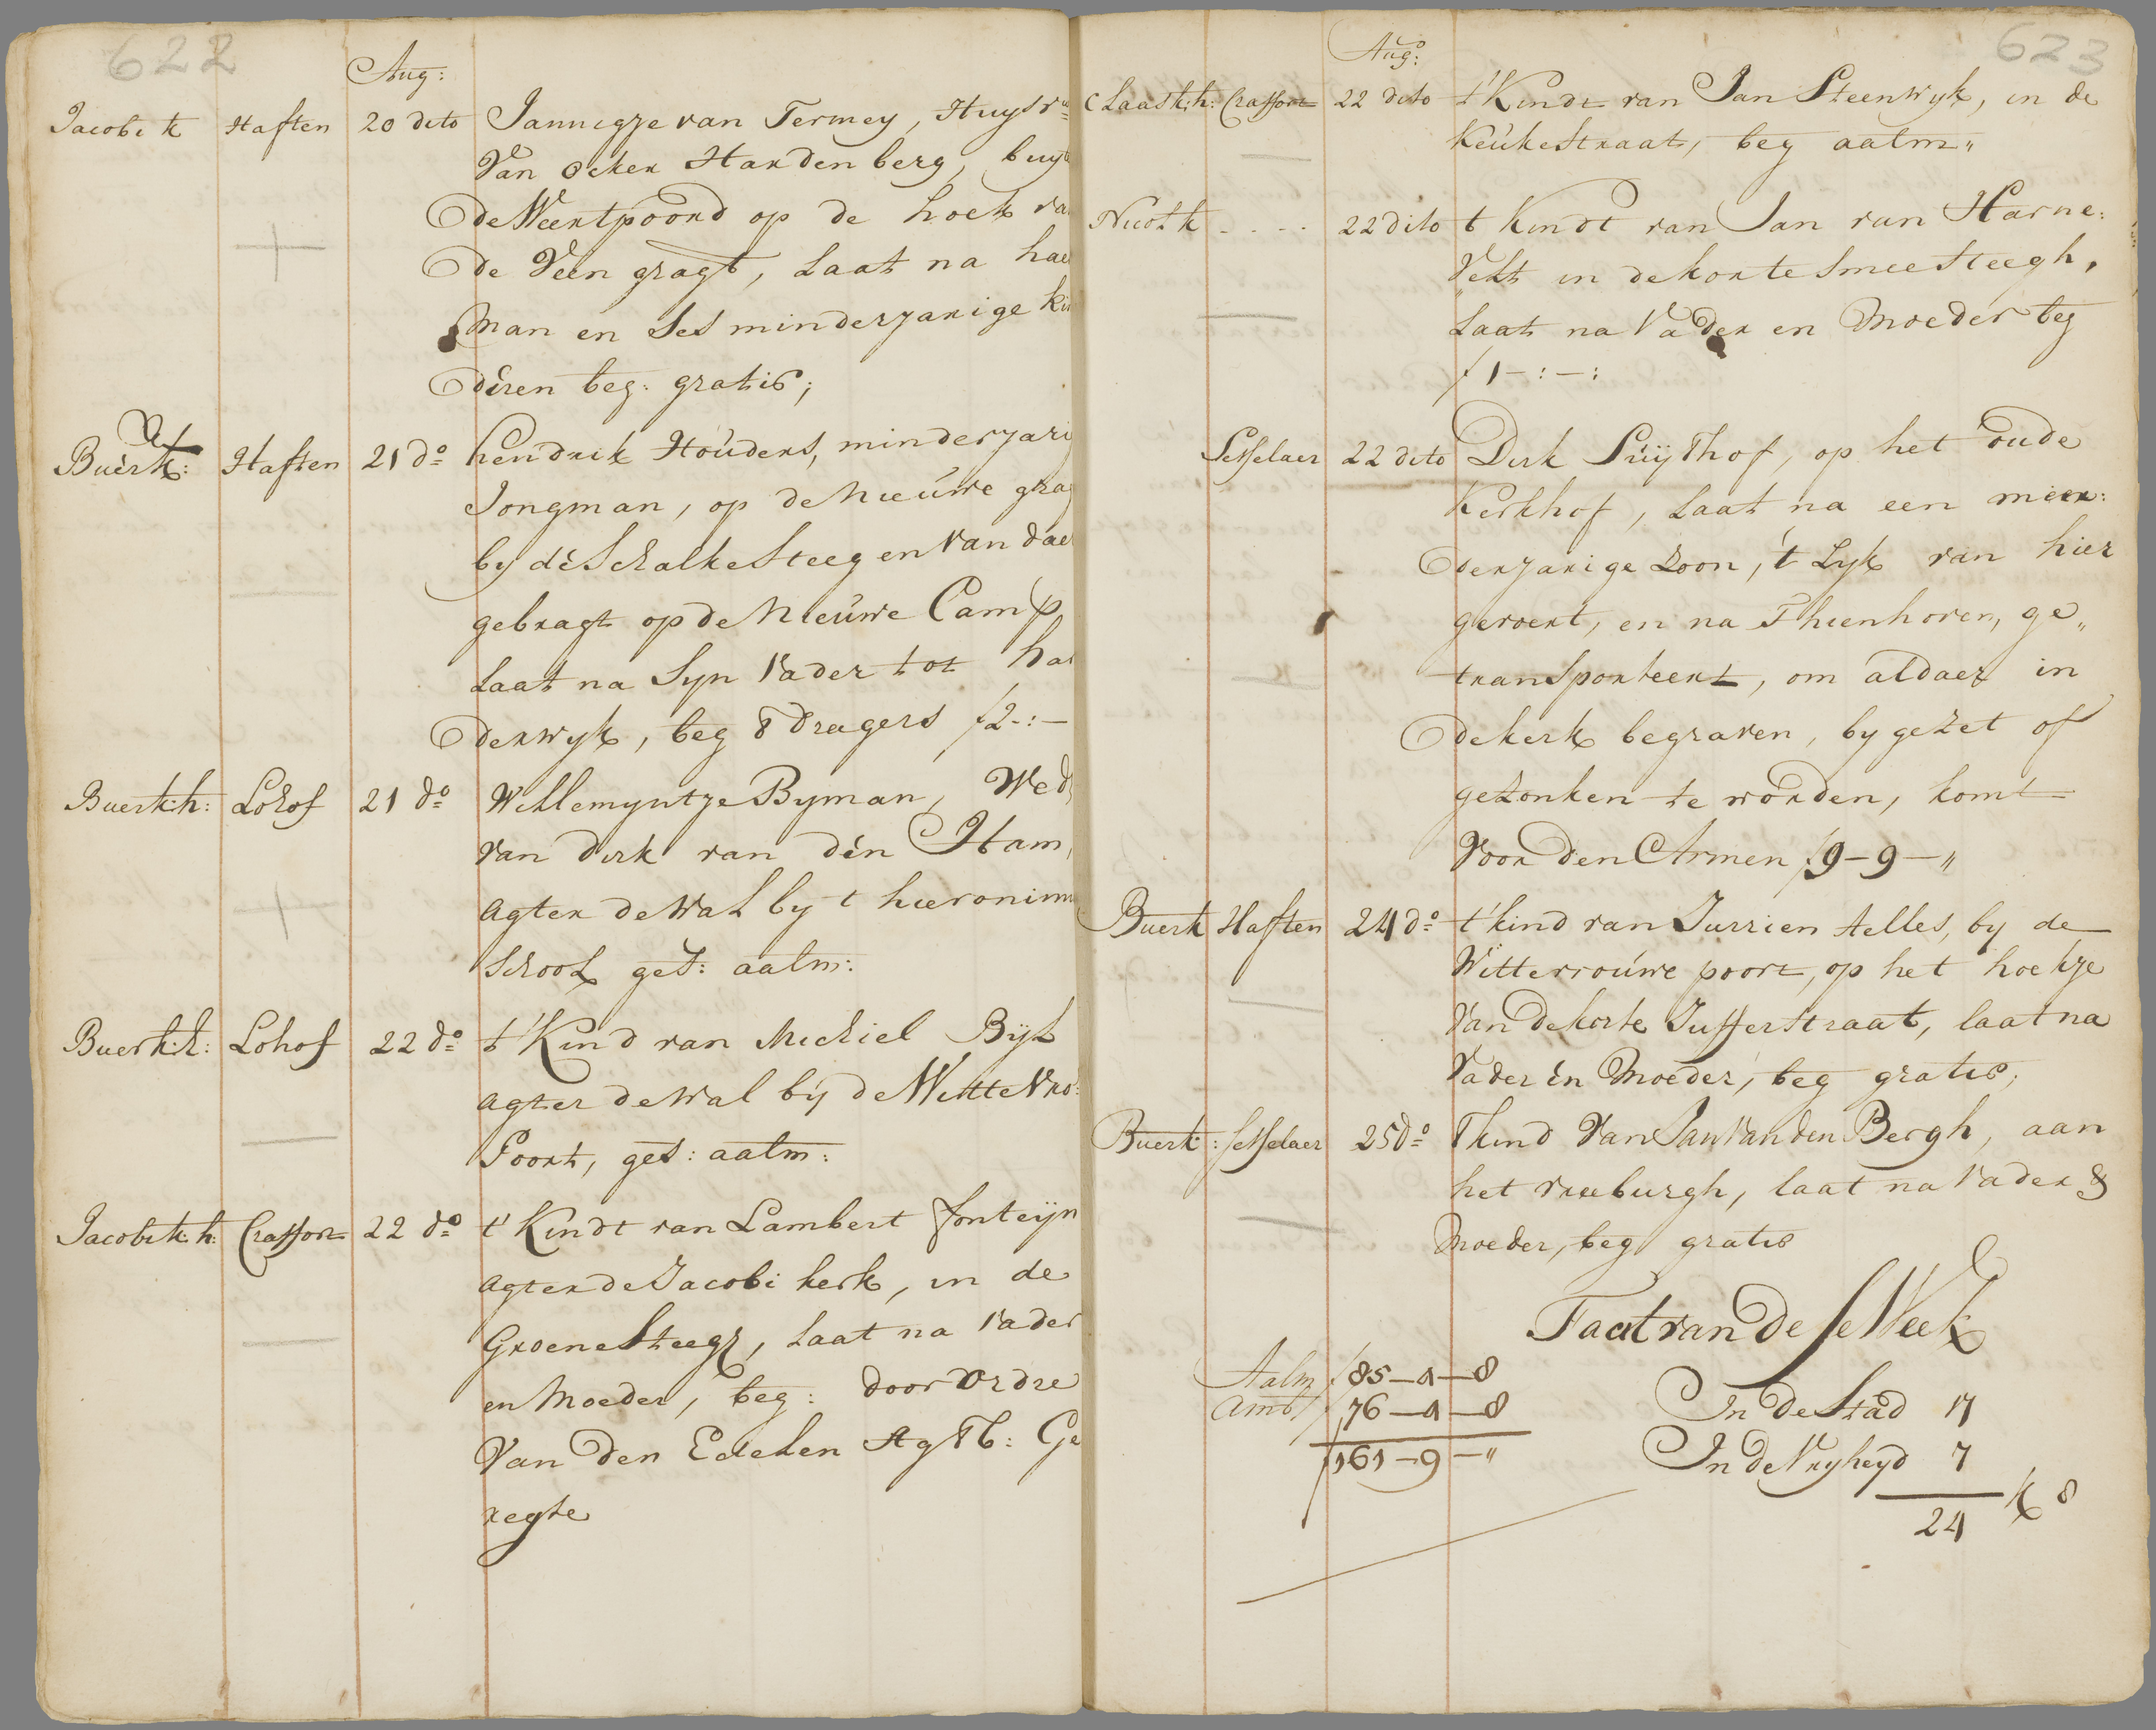 622
Aug:
Jacobi k Haften 20 dito Jannigje van Termey, Huysv
Van Ocker Hardenberg, buyt
de Weertpoord op de hoek va
de Veen gragt, Laat na hae
man en Ses minderjarige ki
deren beg: gratis;
Buerk: Haften 21 do hendrik Houders, minderjari
Jongman, op de Nieuwe gra
by de Schalkesteeg en van dae
gebragt op de Nieuwe Camp,
Laat na Syn Vader tot har
derwyk, beg 8 dragers f 2-:-
Buerk:h: Lohof 21 do Willemyntje Byman, Wed
van dirk van den Ham,
agter de wal by t hieronim
School get: aalm:
Buerk:h: Lohof 22 do t' Kind van Michiel Byl
agter de wal by de Witte Vro:
Poort, get: aalm:
Jacobik:h: Craffort 22 do t' Kindt van Lambert fonteijn
agter de Jacobi kerk, in de
Groene Steegh, Laat na Vader
en Moeder, beg: door ordre
Van den Edelen Agtb: Ge
regte
623
Aug:
Claask:h: Craffort 22 dito t' Kindt van Jan Steenwyk, in de
Keukestraat, beg aalm"
Nicolk - - - - 22 dito t Kindt van Jan van Harne:
Velt in de korte Smeesteegh,
Laat na Vader en Moeder beg
f 1-:-:
Sesselaer 22 dito Dirk Suythof, op het oude
Kerkhof, Laat na een min:
derjarige Zoon, 't Lyk van hier
gevoert, en na Thienhoven, ge"
transporteert, om aldaer in
de kerk begraven, bygezet of
gezonken te worden, komt
Voor den Armen f 9-9-"
Buerk Haften 24 do t' kind van Jurrien Aelles, by de
Wittevrouwe poort, op het hoekje
Van de korte Jufferstraat, laat na
Vader en Moeder, beg gratis;
Buerk: Sesselaer 25 do T kind Van Jan van den Bergh, aan
het vreeburgh, laat na Vader &
Moeder, beg gratis
Taat van dese Week
Aalm f 85-4-8
Amb f 76-4-8
f 161-9-"
In de Stad 17
In de Vryheyd 7
24 k 8